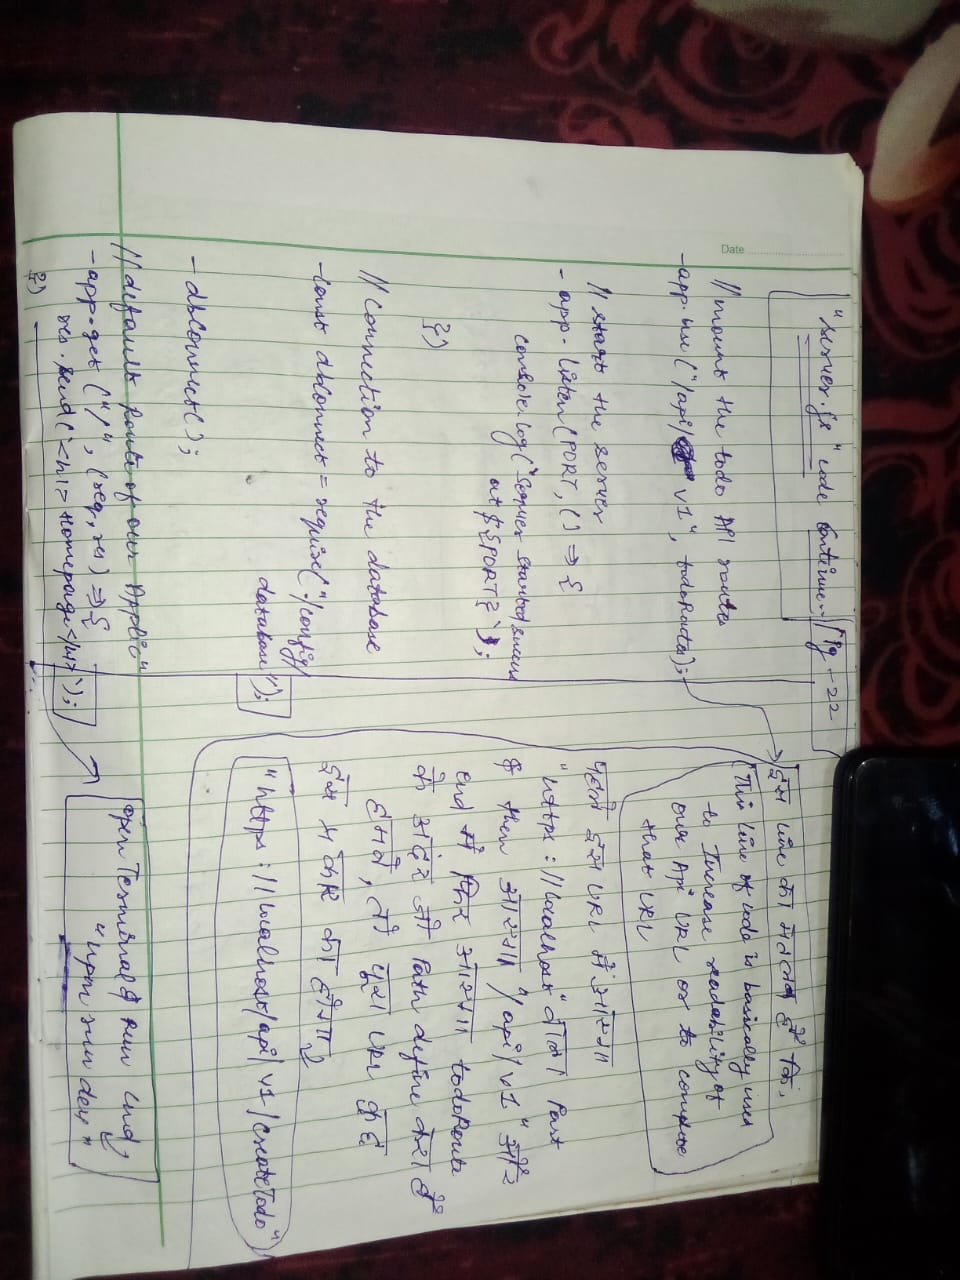 Date
"server.js" code continue..
Pg - 22
// mount the todo API routes
- app.use("/api/v1", todoRoutes);
// start the server
- app.listen(PORT, () => {
console.log(`Server started
at ${PORT}`);
})
// Connection to the database
- const dbConnect = require("./config/
database");
- dbConnect();
// default route of our Applic"
- app.get("/", (req, res) => {
res.send(`<h1> Homepage</h1>`);
})
इस line का मतलब है कि,
This line of code is basically used
to Increase readability of
our Api URL or to complete
that URL
इस URL में आएगा
"https://localhost" वाला Part
then आएगा "/api/v1" और
end में फिर आएगा todoRoute
के अंदर जो Path define करा है
हमने, तो पूरा URL
इस प्रकार का होगा
"https://localhost/api/v1/createTodo"
open Terminal & run cmd,
"npm run dev"